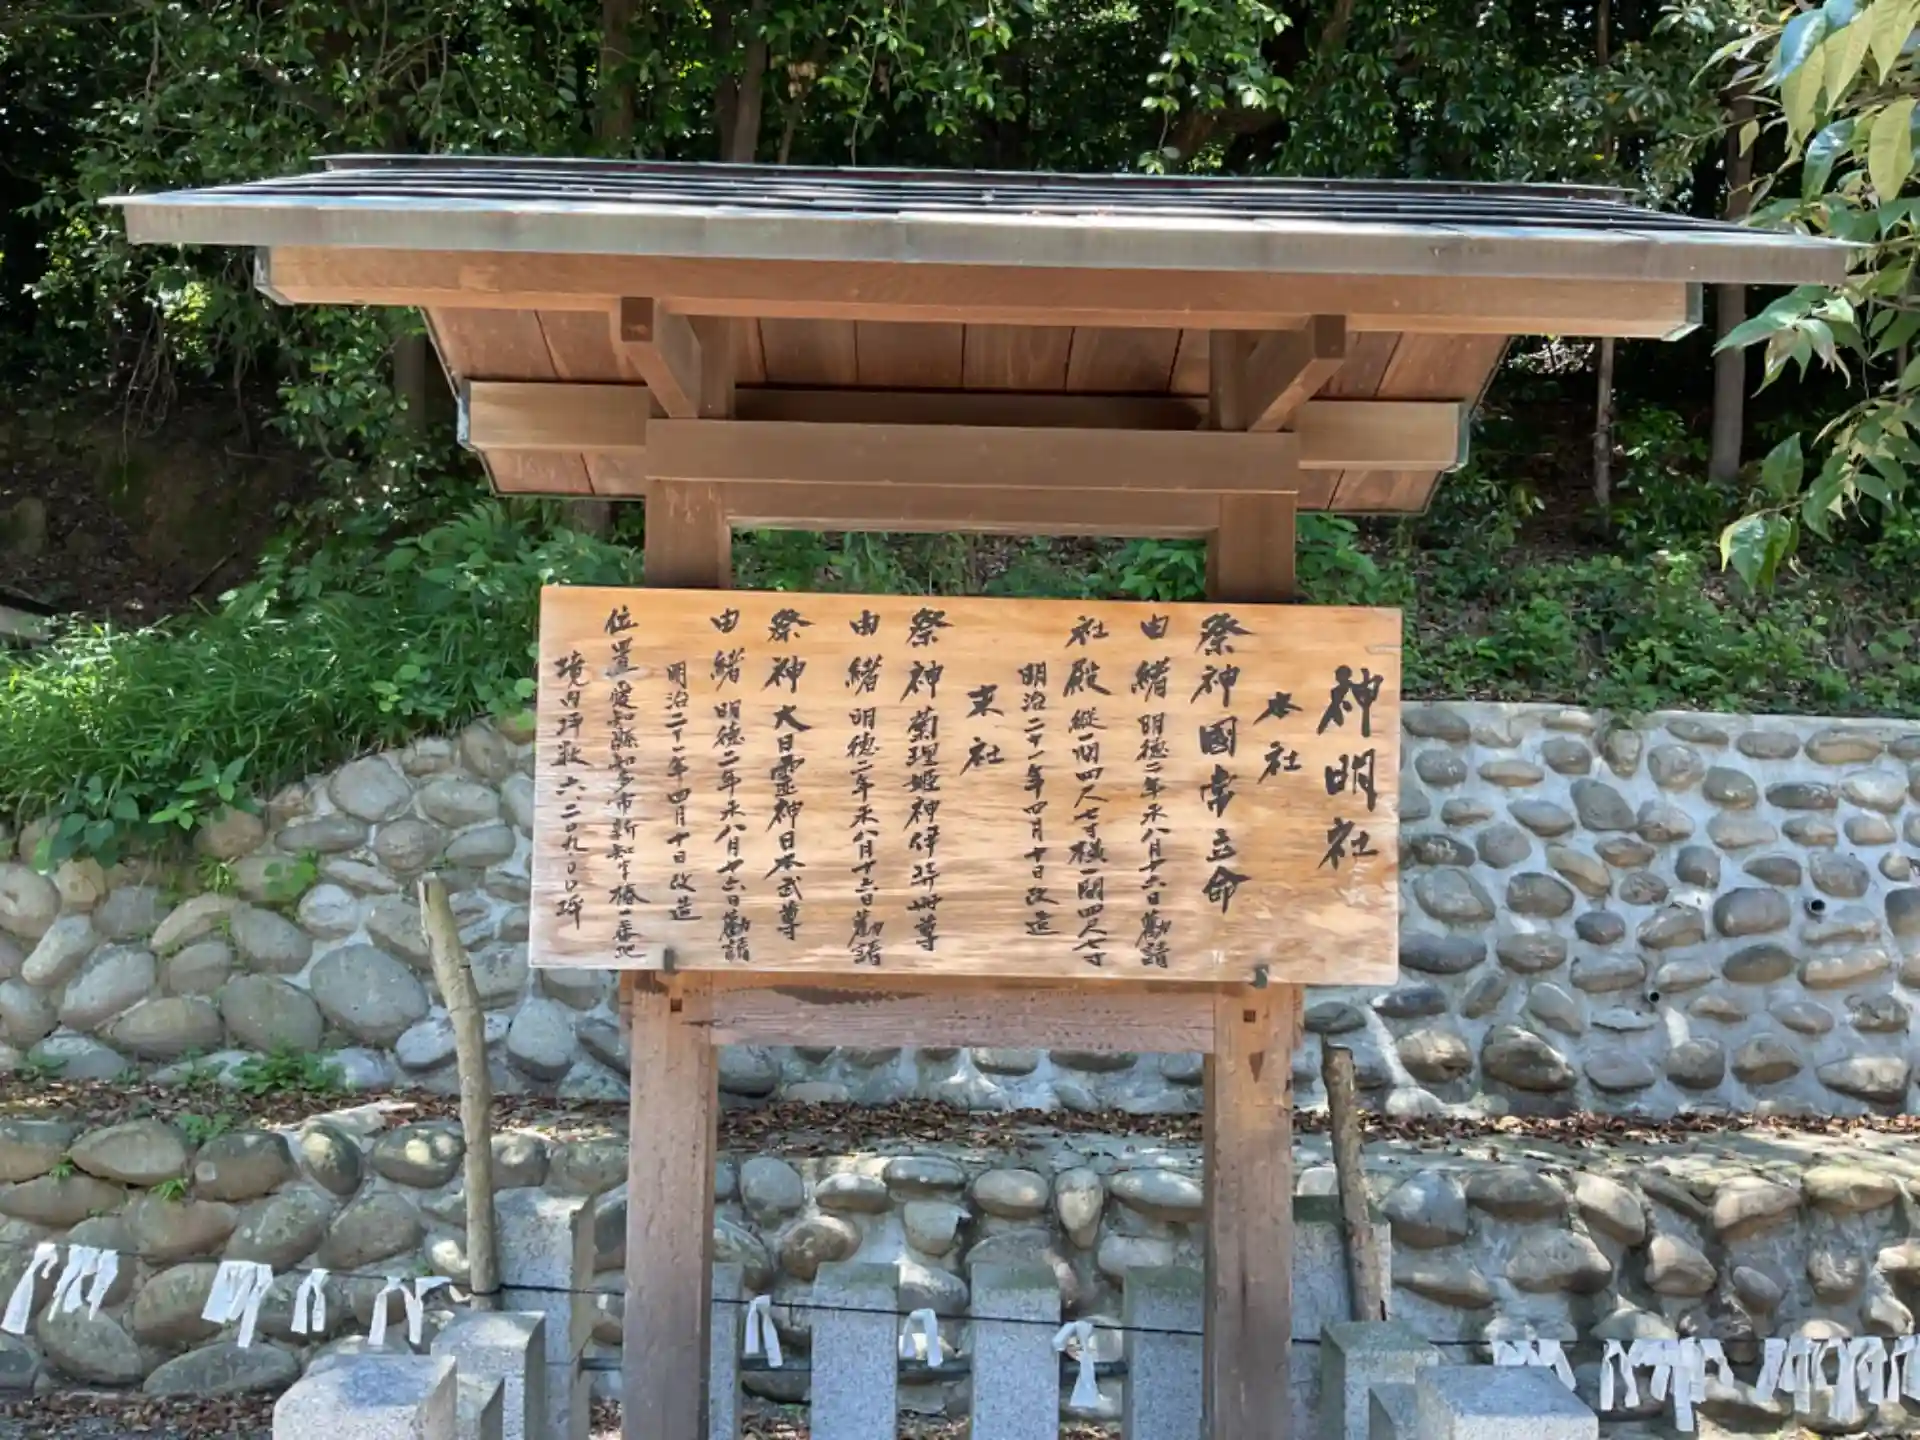 神明社
本社
祭神 國常立命
由緒 明徳二年未八月十六日勸請
社殿 縦一間四尺七寸横一間四尺七寸
明治二十一年四月十日改造
末社
祭神 菊理姫神伊弉冊尊
由緒 明徳二年未八月十六日勸請
祭神 大日霊神日本武尊
由緒 明徳二年未八月十六日勸請
明治二十一年四月十日改造
位置 愛知縣知多市新知字椿一番地
境内坪数 六、二〇九・〇〇坪